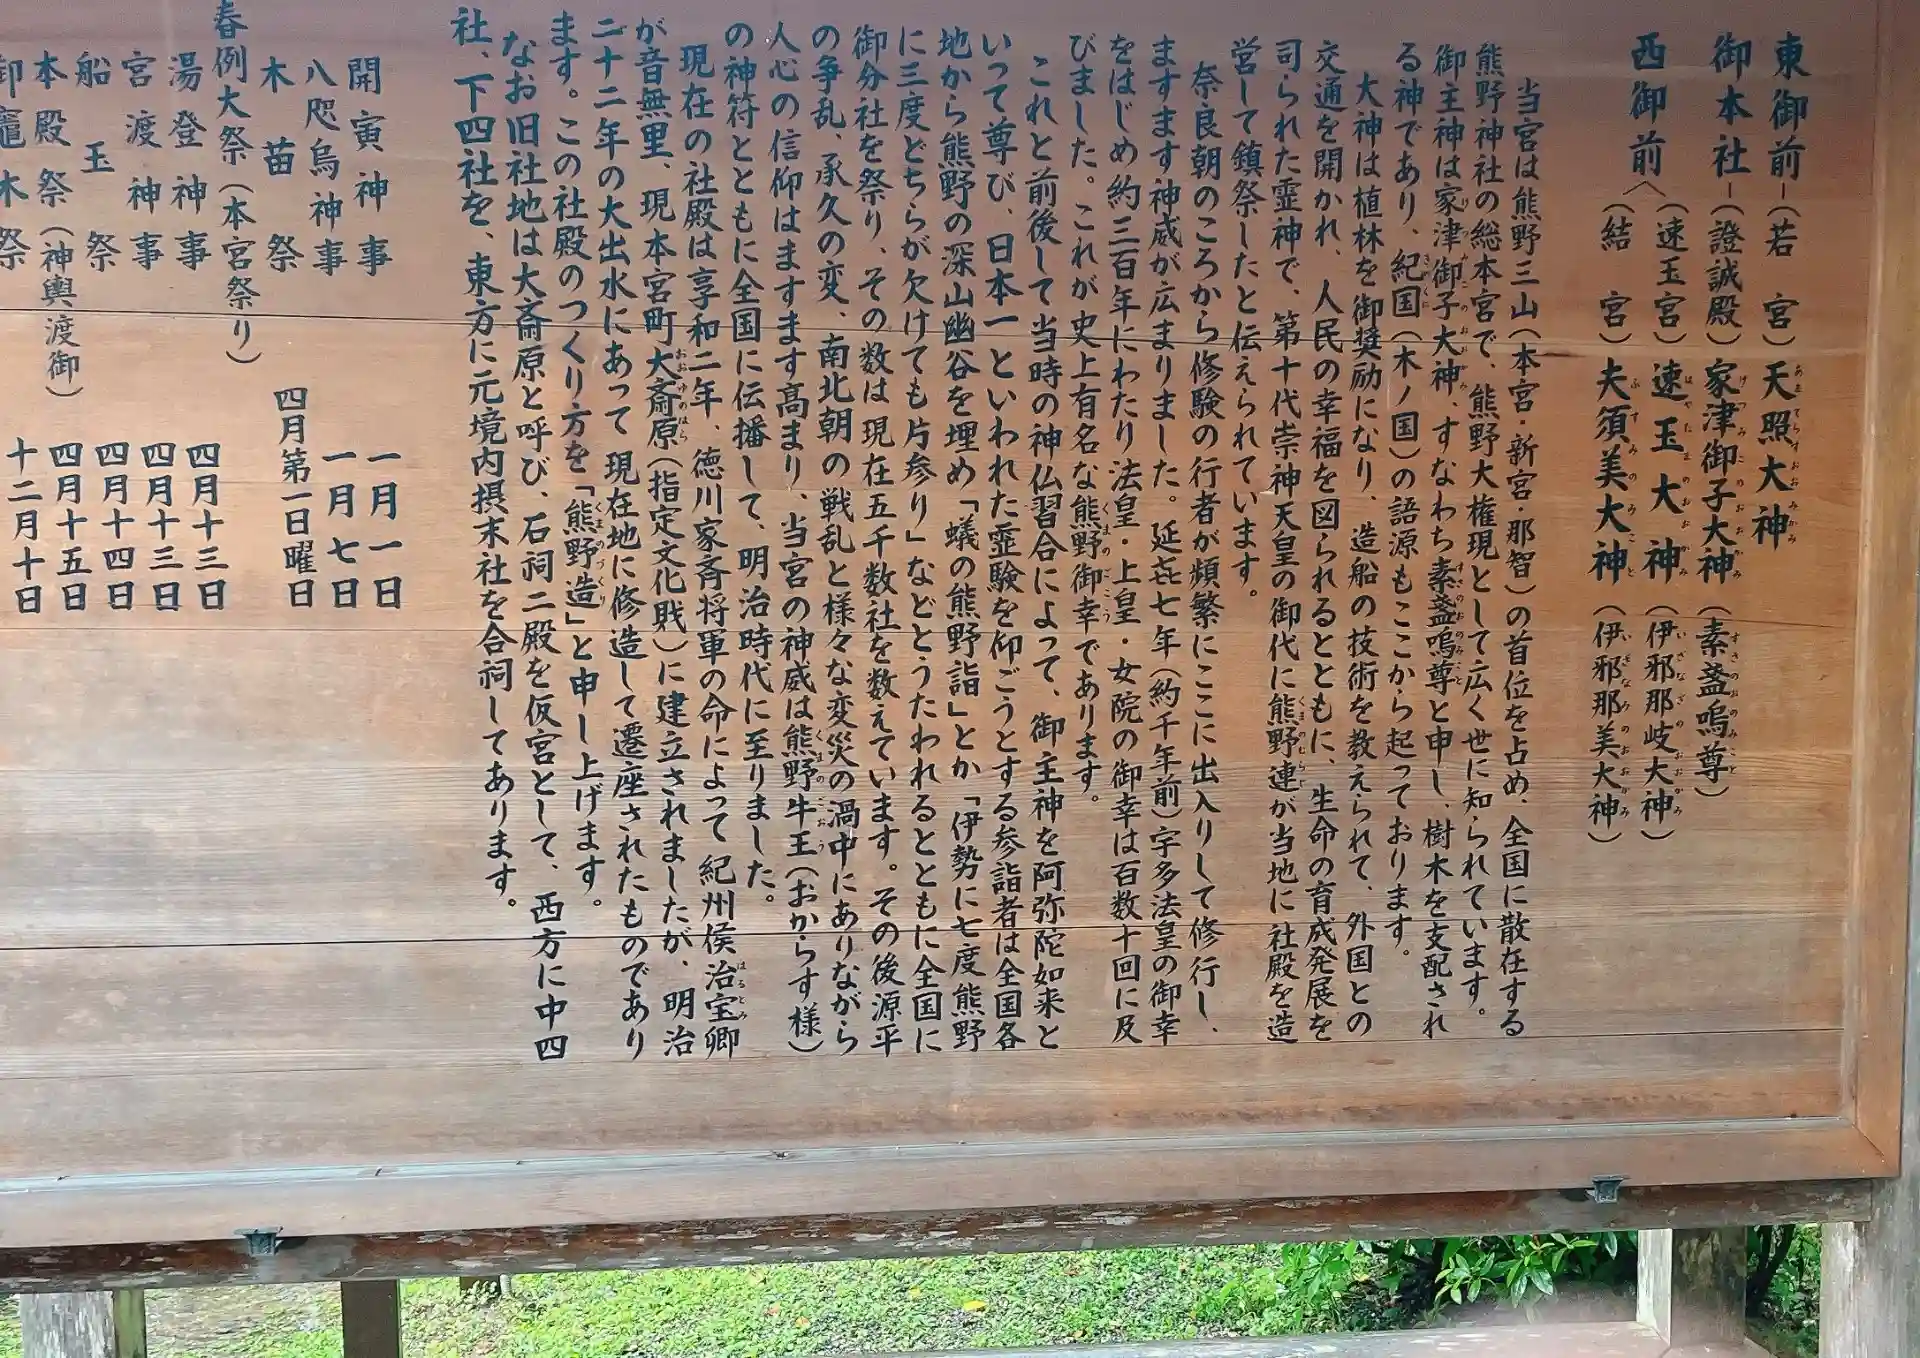 東御前―(若宮)天照大神
御本社―(證誠殿)家津御子大神(素盞嗚尊)
西御前
(速玉宮)速玉大神(伊邪那岐大神)
(結宮)夫須美大神(伊邪那美大神)
当宮は熊野三山(本宮・新宮・那智)の首位を占め、全国に散在する
熊野神社の総本宮で、熊野大権現として広く世に知られています。
御主神は家津御子大神、すなわち素盞嗚尊と申し、樹木を支配され
る神であり、紀国(木ノ国)の語源もここから起っております。
大神は植林を御奨励になり、造船の技術を教えられて、外国との
交通を開かれ、人民の幸福を図られるとともに、生命の育成発展を
司られた霊神で、第十代崇神天皇の御代に熊野連が当地に社殿を造
営して鎮祭したと伝えられています。
奈良朝のころから修験の行者が頻繁にここに出入りして修行し、
ますます神威が広まりました。延㐂七年(約千年前)宇多法皇の御幸
をはじめ約三百年にわたり法皇・上皇・女院の御幸は百数十回に及
びました。これが史上有名な熊野御幸であります。
これと前後して当時の神仏習合によって、御主神を阿弥陀如来と
いって尊び、日本一といわれた霊験を仰ごうとする参詣者は全国各
地から熊野の深山幽谷を埋め「蟻の熊野詣」とか「伊勢に七度熊野
に三度どちらが欠けても片参り」などとうたわれるとともに全国に
御分社を祭り、その数は現在五千数社を数えています。その後源平
の争乱、承久の変、南北朝の戦乱と様々な変災の渦中にありながら
人心の信仰はますます高まり、当宮の神威は熊野牛王(おからす様)
の神符とともに全国に伝播して、明治時代に至りました。
現在の社殿は享和二年、徳川家斉将軍の命によって紀州侯治宝卿
が音無里、現本宮町大斎原(指定文化財)に建立されましたが、明治
二十二年の大出水にあって現在地に修造して遷座されたものであり
ます。この社殿のつくり方を「熊野造」と申し上げます。
なお旧社地は大斎原と呼び、石祠二殿を仮宮として、西方に中四
社、下四社を、東方に元境内摂末社を合祠してあります。
開寅神事 一月一日
八咫烏神事 一月七日
木苗祭 四月第一日曜日
春例大祭(本宮祭り)
湯登神事 四月十三日
宮渡神事 四月十三日
船玉祭 四月十四日
本殿祭(神輿渡御) 四月十五日
御竈木祭 十二月十日